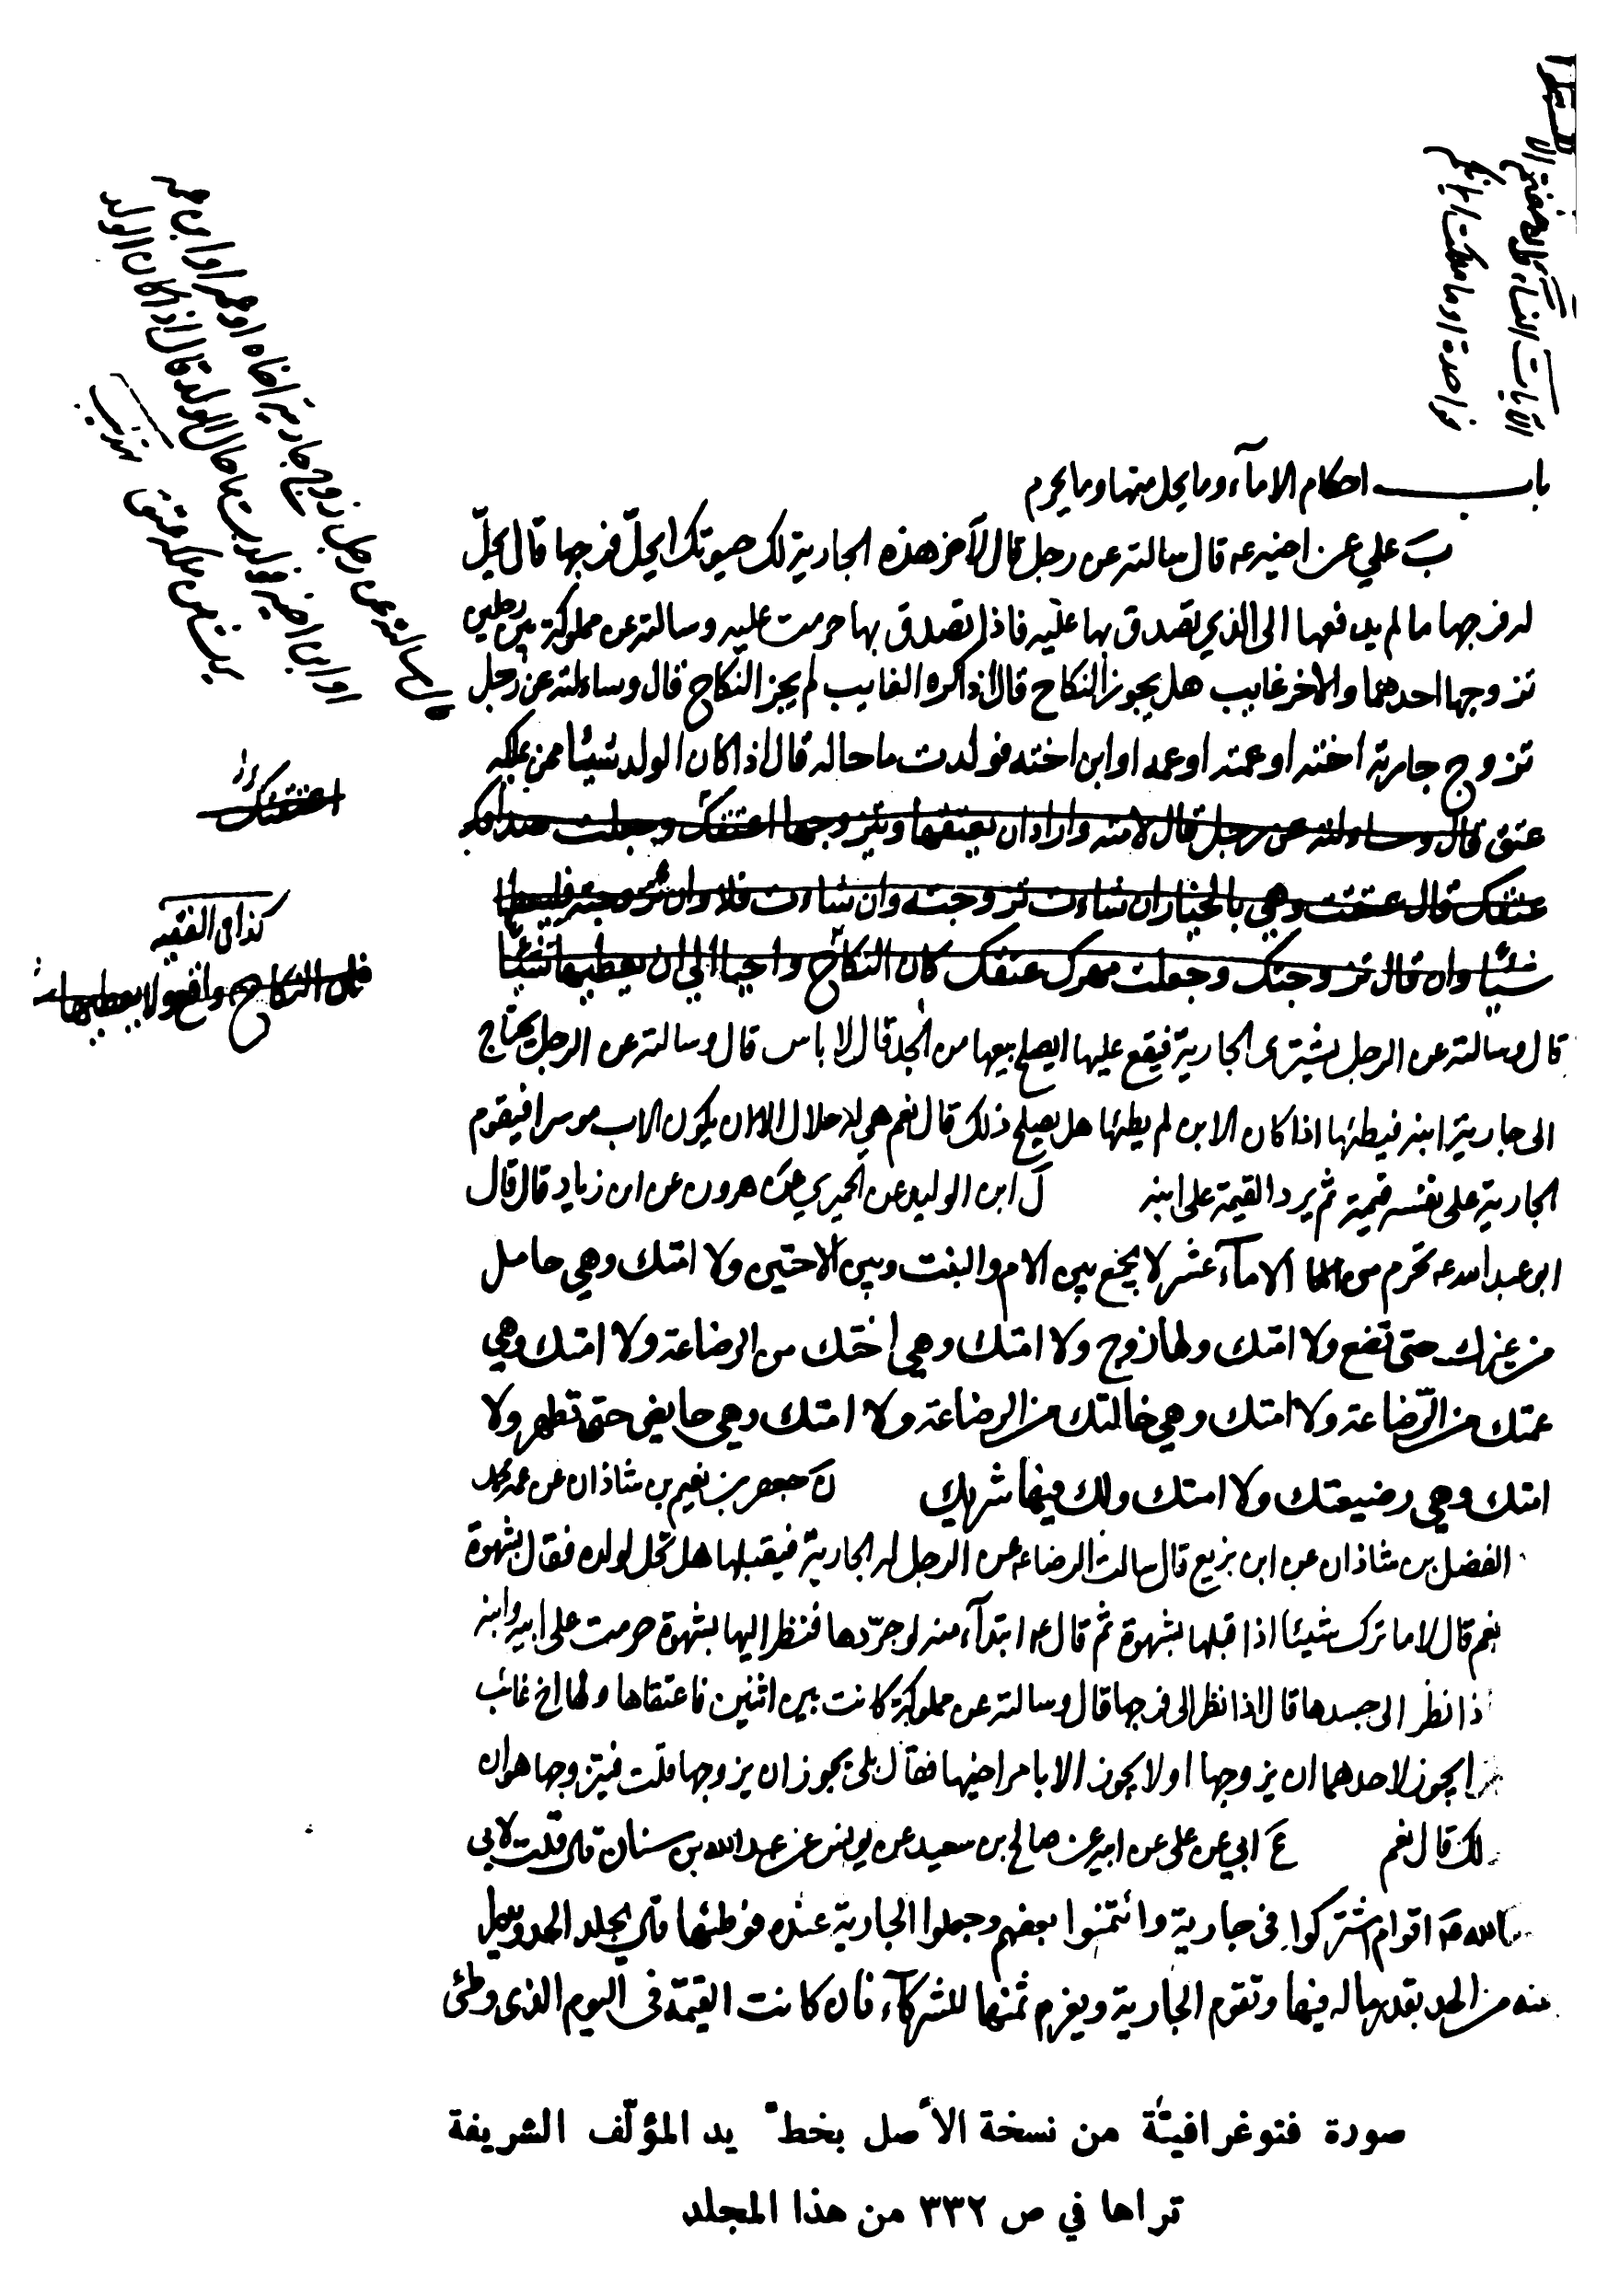 الآيات النساء
فواحدة او ما ملكت ايمانكم
باب احكام الامآء وما يحل منها وما يحرم
ب علي عن اخيه ع قال سالته عن رجل قال لآخر هذه الجارية لك حيوتك ايحلّ فرجها قال يحلّ
له فرجها ما لم يدفعها الى الذي تصدق بها عليه فاذا تصدق بها حرمت عليه وسالته عن مملوكة بين رجلين
تزوجها احدهما والاخر غايب هل يجوز النكاح قال اذا كره الغايب لم يجز النكاح قال وساءلته عن رجل
تزوج جارية اخته او عمته او عمه او ابن اخته فولدت ما حاله قال اذا كان الولد شيئا ممن يملكه
عتق قال وساءلته عن رجل قال لامته واراد ان يعتقها ويتزوجها اعتقتك وجعلت صداقك
عتقك قال عتقت وهي بالخيار ان شاءت تزوجته وان شاءت فلا وان تزوجته فليعطها
شيئا وان قال تزوجتك وجعلت مهرك عتقك كان النكاح واجبا الى ان يعطيها شيئا
قال وسالته عن الرجل يشترى الجارية فيقع عليها ايصلح بيعها من الجد قال لا باس قال وسالته عن الرجل يحتاج
الى جارية ابنه فيطئها اذا كان الابن لم يطئها هل يصلح ذلك قال نعم هي له حلال الا ان يكون الاب موسرا فيقوم
الجارية على نفسه قيمة ثم يرد القيمة على ابنه ل ابن الوليد عن الحميري عن هرون عن ابن زياد قال قال
ابو عبد الله ع تحرم من الامآء عشر لا يجمع بين الام والبنت وبين الاختين ولا امتك وهي حامل
من غيرك حتى تضع ولا امتك ولها زوج ولا امتك وهي اختك من الرضاعة ولا امتك وهي
عمتك من الرّضاعة ولا امتك وهي خالتك من الرضاعة ولا امتك وهي حايض حتى تطهر ولا
امتك وهي رضيعتك ولا امتك ولك فيها شريك ن جعفر بن نعيم بن شاذان عن عمه محمد
الفضل بن شاذان عن ابن بزيع قال سالت الرضا ع عن الرجل له الجارية فيقبلها هل تحل لولده فقال بشهوة
نعم قال لا ما ترك شيئا اذا قبلها بشهوة ثم قال ع ابتدآء منه لو جرّدها فنظر اليها بشهوة حرمت على ابيه وابنه
ذا نظر الى جسدها قال اذا نظر الى فرجها قال وسالته عن مملوكة كانت بين اثنين فاعتقاها ولها اخ غائب
ايجوز لاحدهما ان يزوجها او لا يجوز الا بامر اخيها فقال بلى يجوز ان يزوجها قلت فيتزوجها هو ان
لك قال نعم ع ابي عن على عن ابيه عن صالح بن سعيد عن يونس عن عبد الله بن سنان قال قلت لابى
الله ع اقوام اشتركوا في جارية وائتمنوا بعضهم وجعلوا الجارية عنده فوطئها قال يجلد الحد ويدرا
عنه من الحد بقدر ما له فيها وتقوم الجارية ويغرم ثمنها للشركآء فان كانت القيمة في اليوم الذى وطئ
سالته عن رجل زوج جاريته اخاه او عمه او ابن عمه
او ابن اخيه فولدت ما حال الولد قال اذا كان الولد
يرث من ملكه عتق
اعتقتك
كذا في الفقيه
فان النكاح واقع ولا يعطيها
صورة فتوغرافيّة من نسخة الأصل بخطّ يد المؤلّف الشريفة
تراها في ص ٣٣٢ من هذا المجلد